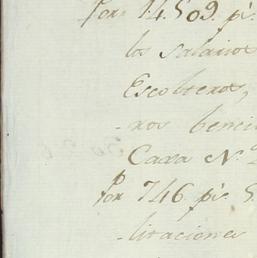 Por 14.509. ps.
los salarios
Escolteros,
-ros benci
Cara N.
Por 746. ps. 5.
-litaciones